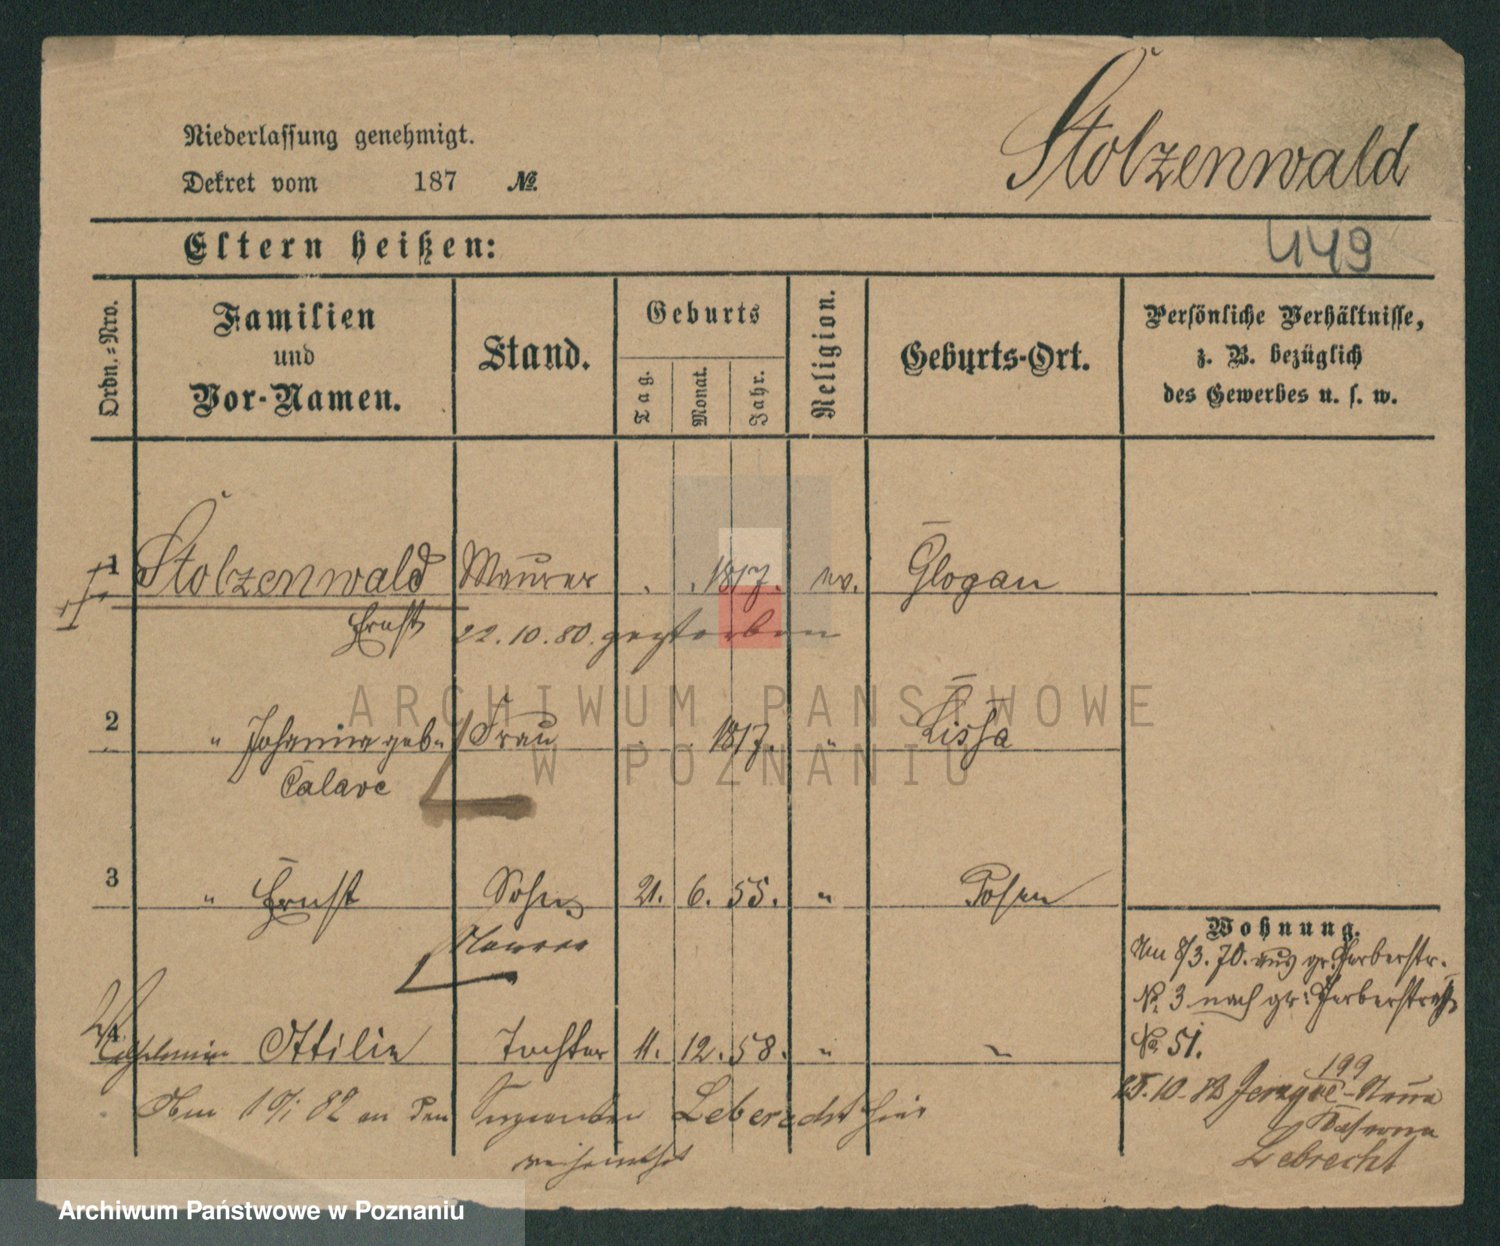 Niederlassung genehmigt.
Dekret vom 187 №
Stolzenwald
Eltern heißen:
449
Ordn.=Nro.
Familien
und
Vor-Namen.
Stand.
Geburts
Tag.
Monat.
Jahr.
Religion.
Geburts-Ort.
Persönliche Verhältnisse,
z. B. bezüglich
des Gewerbes u. s. w.
1 Stolzenwald Maurer . . 1817. ev. Glogau
Ernst 22.10.80. gestorben
2 " Johanna geb. Frau . . 1817. " Lissa
Calave
3 " Ernst Sohn 21. 6. 55. " Posen
Maurer
4 Wilhelmine Ottilie Tochter 11. 12. 58. " "
Am 82 an den Sergeanten Leberecht hier
verheirathet
Wohnung.
Am 8/3. 70. aus gr. Gerberstr.
№ 3 nach gr: Gerberstraße
№ 51.
199
25.10.82
Lebrecht
ARCHIWUM PAŃSTWOWE
W POZNANIU
Archiwum Państwowe w Poznaniu